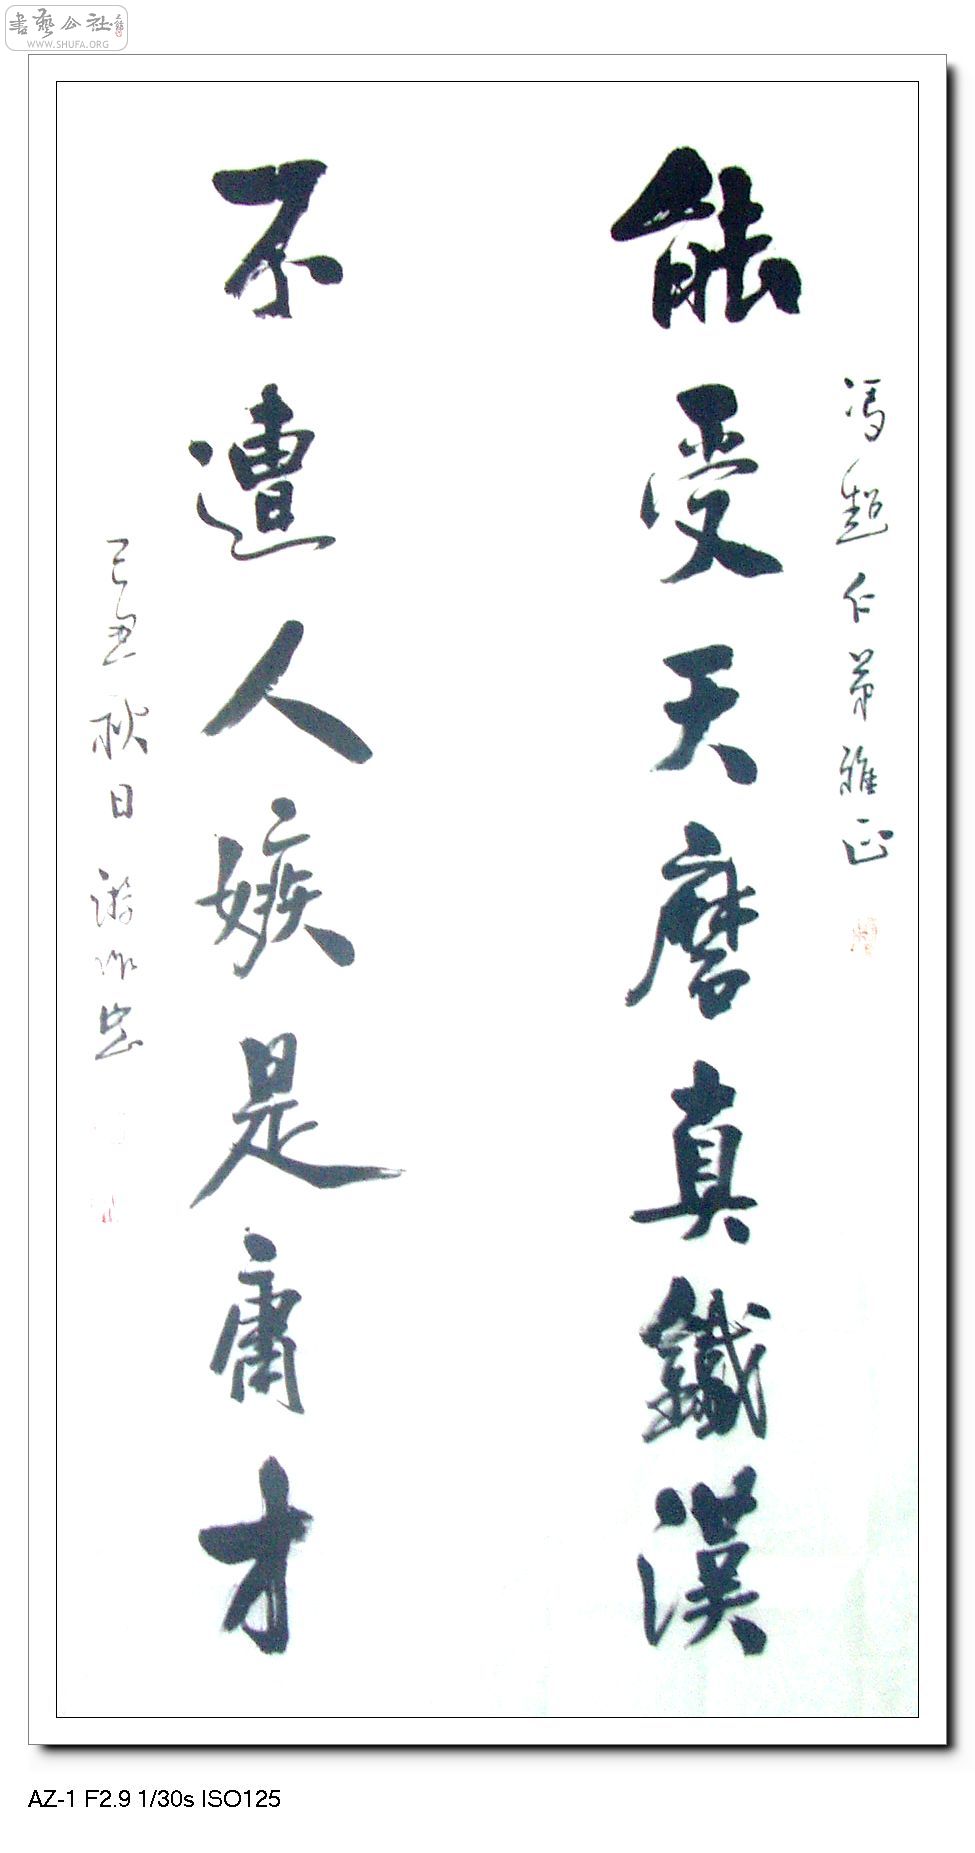 書藝公社
WWW.SHUFA.ORG
馮超仁弟雅正
能受天磨真鐵漢
不遭人嫉是庸才
己丑秋日游作忠
AZ-1 F2.9 1/30s ISO125